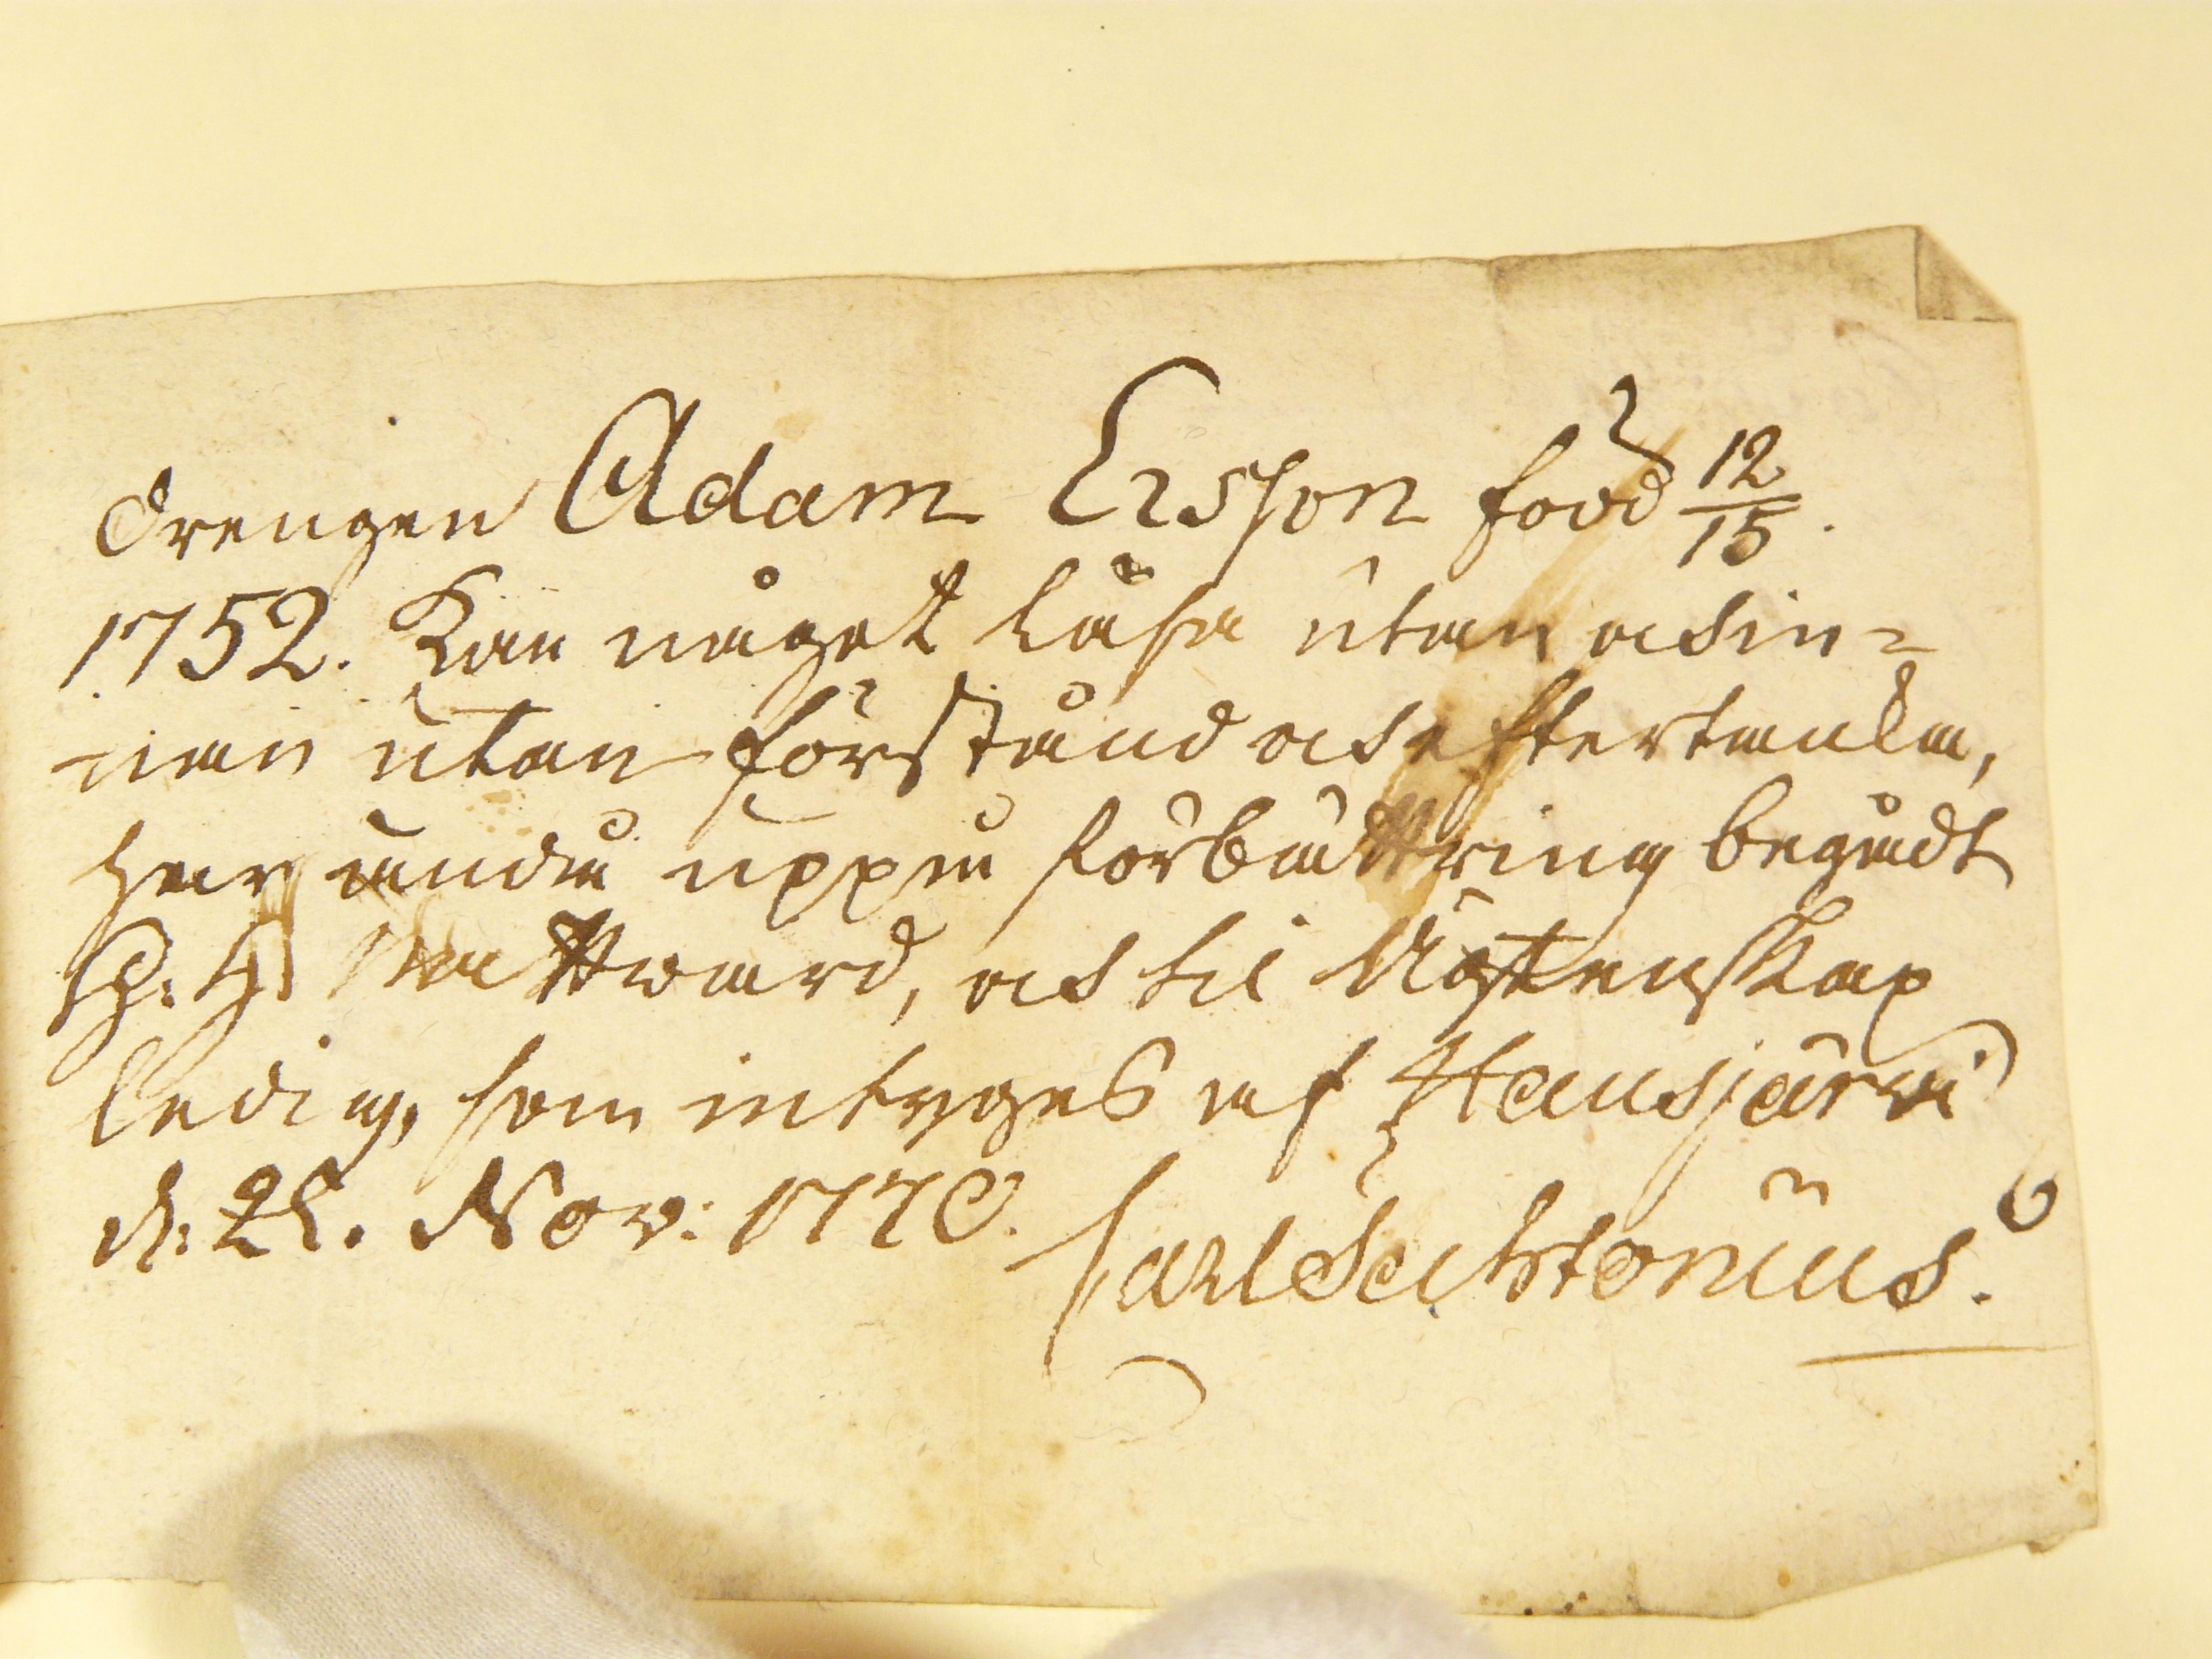 Drengen Adam Ersson född 12/15.
1752. Kan något läsa utan och in=
nan utan förstånd och eftertanka,
har ändå uppå förbättring begådt
H. H. Nattward, och til Ächtenskap
ledig, som intyges af Hausjärvi
d. 28. Nov: 1770. Carl Sextonius.